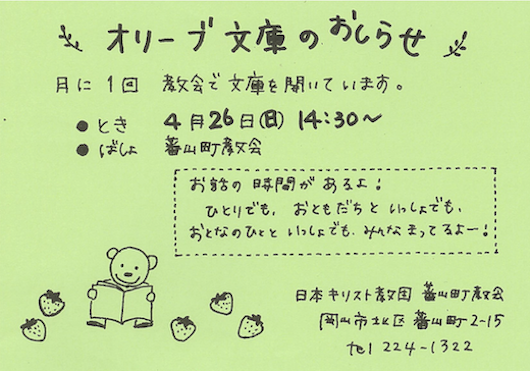 オリーブ文庫のおしらせ
月に1回 教会で文庫を開いています。
● とき 4月26日(日) 14:30〜
● ばしょ 蕃山町教会
お話の時間があるよ!
ひとりでも、おともだちといっしょでも、
おとなのひとといっしょでも、みんなまってるよー!
日本キリスト教団 蕃山町教会
岡山市北区蕃山町2-15
tel 224-1322